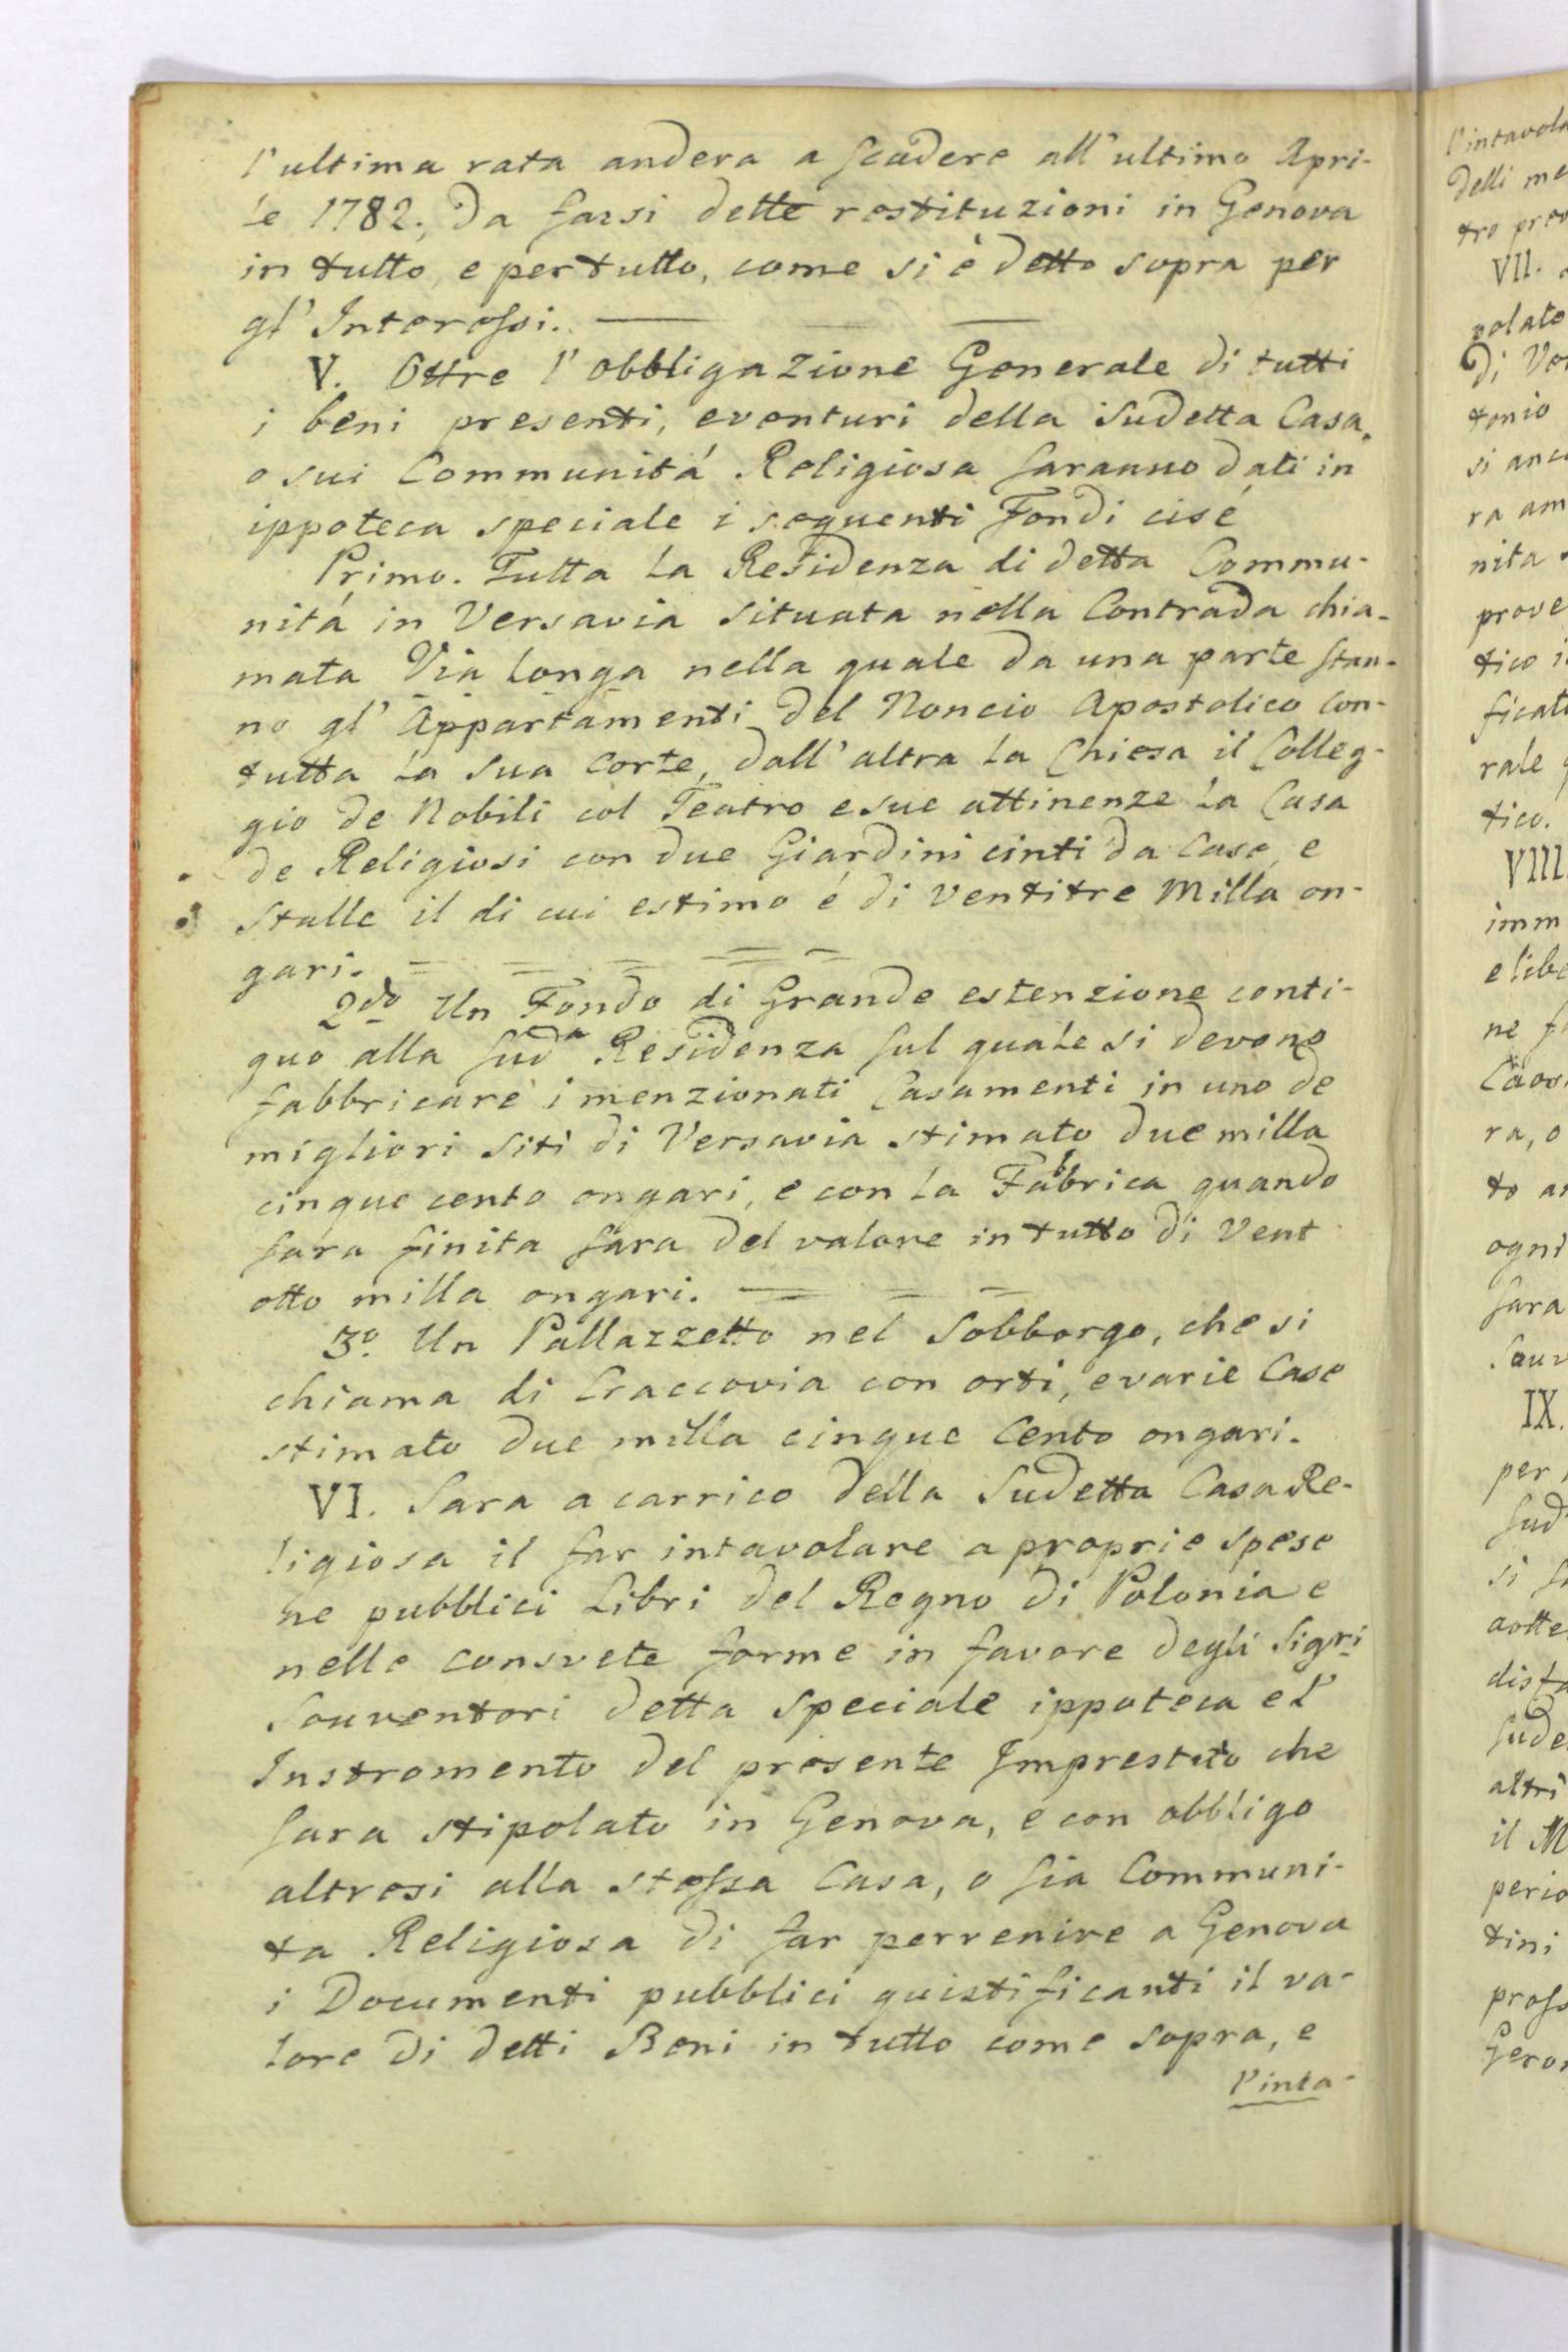 l'ultima rata andera a scadere all'ultimo Apri-
le 1782. Da farsi dette restituzioni in Genova
in tutto, e per tutto, come si è detto sopra per
gl' Interessi.
V. Oltre l'obbligazione Generale di tutti
i beni presenti, eventuri della sudetta Casa,
o sui Communitá Religiosa saranno dati in
ippoteca speciale i seguenti Fondi cisé
Primo. Tutta la Residenza di detta Commu-
nitá in Versavia situata nella Contrada chia-
mata Via longa nella quale da una parte stan-
no gl' Appartamenti del Noncio Apostolico con-
tutta la sua Corte, dall'altra la Chiesa il Colleg-
gio de Nobili col Teatro e sue attinenze la Casa
de Religiosi con due Giardini cinti da Case, e
stalle il di cui estimo é di Ventitre Milla on-
gari.
2do Un Fondo di Grande estenzione conti-
guo alla suda Residenza sul quale si devono
fabbricare i menzionati Casamenti in uno de
migliori siti di Versavia stimato due milla
cinque cento ongari, e con la Fabbrica quando
sara finita sara del valore in tutto di Vent
otto milla ongari.
3o. Un Pallazzetto nel Sobborgo, che si
chiama di Craccovia con orti, e varie Case
stimato due milla cinque Cento ongari.
VI. Sara a carrico della Sudetta Casa Re-
ligiosa il far intavolare a proprie spese
ne pubblici Libri del Regno di Polonia e
nelle consvete forme in favore degli Sigri
Souventori detta speciale ippoteca e l'
Instromento del presente Imprestito che
sara stipolato in Genova, e con obbligo
altresi alla stessa Casa, o sia Communi-
ta Religiosa di far pervenire a Genova
i Documenti pubblici guistificanti il va-
lore di detti Beni in tutto come sopra, e
l'inta-
l'intavola
delli me
tro prov
VII.
volato
di Ver
tonio
si anc
ra am
nita
prove
tico i
ficat
rale
tico.
VIII
imm
e libe
ne
ra, o
to a
ogni
sara
Souv
IX.
per
sud
si
dist
sude
altri
il M
perio
tini